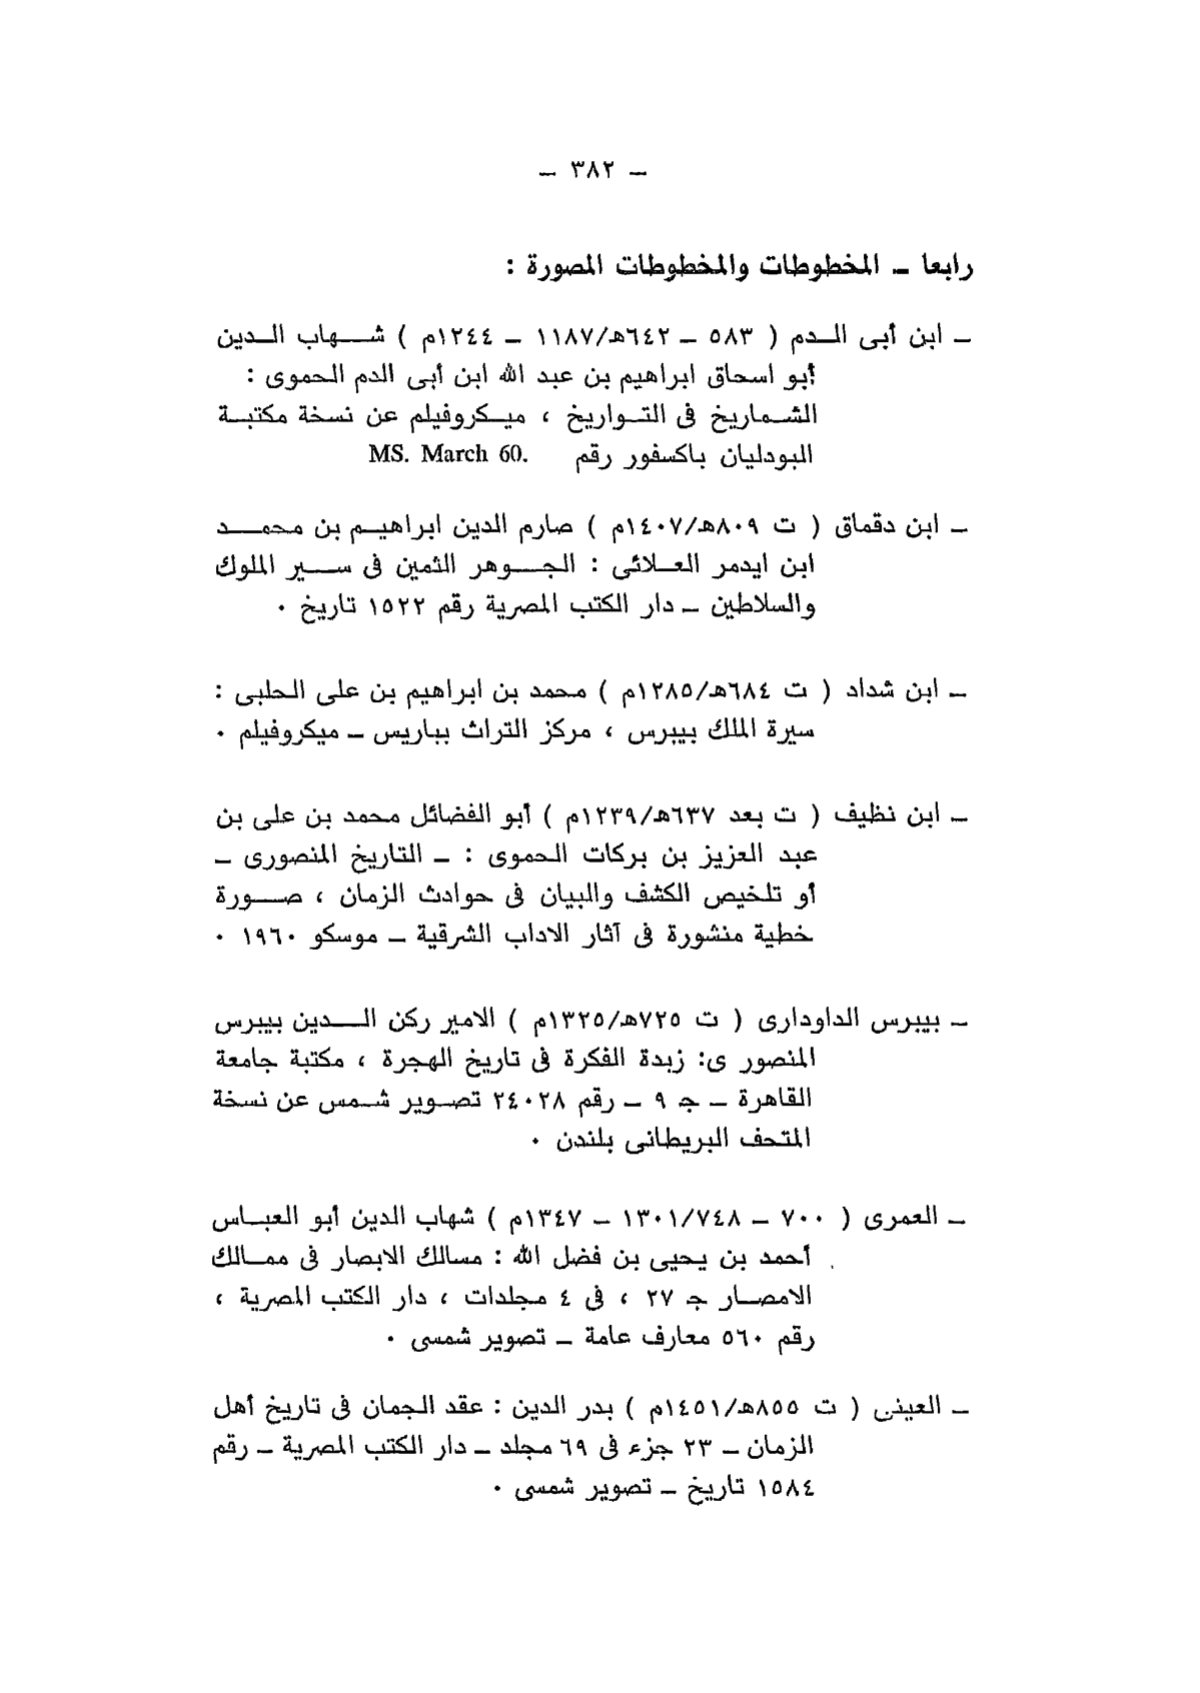 – ٣٨٢ –
رابعا – المخطوطات والمخطوطات المصورة :
– ابن أبى الدم ( ٥٨٣ – ٦٤٢هـ/١١٨٧ – ١٢٤٤م ) شهاب الدين
أبو اسحاق ابراهيم بن عبد الله ابن أبى الدم الحموى :
الشماريخ فى التواريخ ، ميكروفيلم عن نسخة مكتبة
البودليان باكسفور رقم MS. March 60.
– ابن دقماق ( ت ٨٠٩هـ/١٤٠٧م ) صارم الدين ابراهيم بن محمد
ابن ايدمر العلائى : الجوهر الثمين فى سير الملوك
والسلاطين – دار الكتب المصرية رقم ١٥٢٢ تاريخ ٠
– ابن شداد ( ت ٦٨٤هـ/١٢٨٥م ) محمد بن ابراهيم بن على الحلبى :
سيرة الملك بيبرس ، مركز التراث بباريس – ميكروفيلم ٠
– ابن نظيف ( ت بعد ٦٣٧هـ/١٢٣٩م ) أبو الفضائل محمد بن على بن
عبد العزيز بن بركات الحموى : – التاريخ المنصورى –
أو تلخيص الكشف والبيان فى حوادث الزمان ، صورة
خطية منشورة فى آثار الاداب الشرقية – موسكو ١٩٦٠ ٠
– بيبرس الداودارى ( ت ٧٢٥هـ/١٣٢٥م ) الامير ركن الدين بيبرس
المنصور ى: زبدة الفكرة فى تاريخ الهجرة ، مكتبة جامعة
القاهرة – ج ٩ – رقم ٢٤٠٢٨ تصوير شمس عن نسخة
المتحف البريطانى بلندن ٠
– العمرى ( ٧٠٠ – ١٣٠١/٧٤٨ – ١٣٤٧م ) شهاب الدين أبو العباس
أحمد بن يحيى بن فضل الله : مسالك الابصار فى ممالك
الامصار ج ٢٧ ، فى ٤ مجلدات ، دار الكتب المصرية ،
رقم ٥٦٠ معارف عامة – تصوير شمسى ٠
– العينى ( ت ٨٥٥هـ/١٤٥١م ) بدر الدين : عقد الجمان فى تاريخ أهل
الزمان – ٢٣ جزء فى ٦٩ مجلد – دار الكتب المصرية – رقم
١٥٨٤ تاريخ – تصوير شمسى ٠